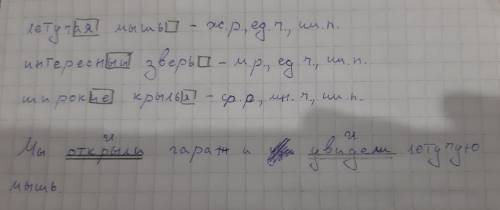 летучая мышь - ж.р., ед.ч., им.п.
интересный зверь - м.р., ед.ч., им.п.
широкие крылья - ср.р., мн.ч., им.п.
Мы открыли гараж и увидели летучую
мышь.